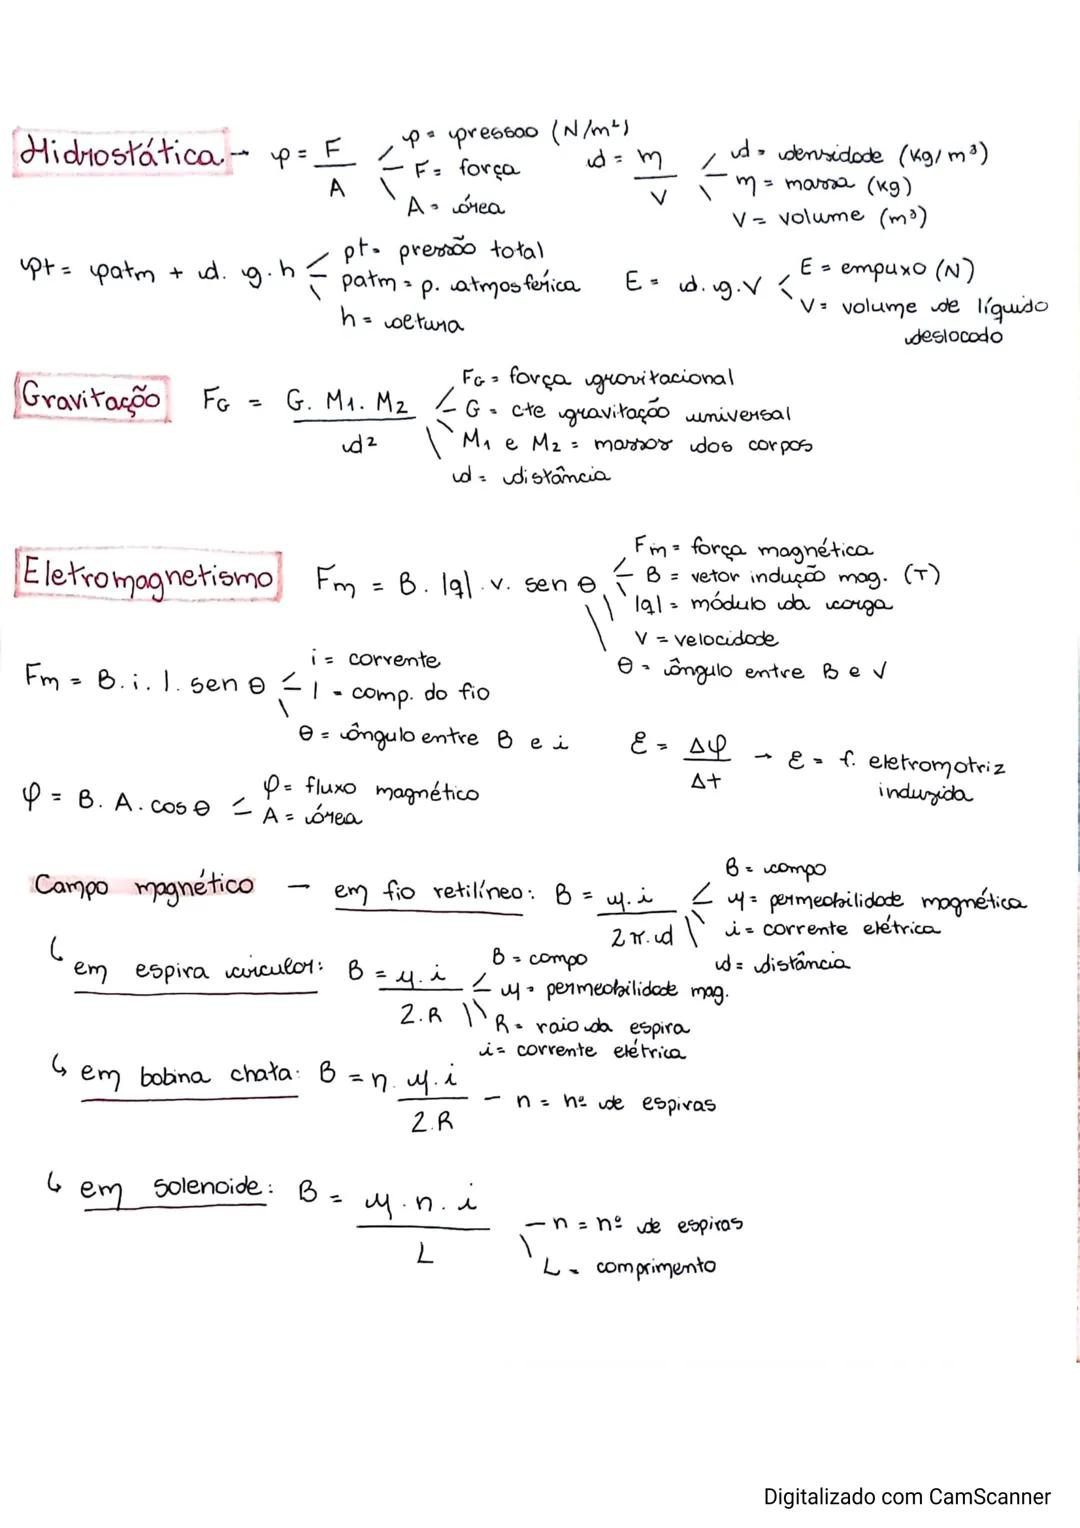 Hidrostática → p = F/A
p = pressao (N/m²)
F = força
A = área
d = m/V
d = densidade (kg/m³)
m = massa (kg)
V = volume (m³)
pt = patm + d. g. h
pt = pressão total
patm = p. atmosférica
h = altura
E = d. g. V
E = empuxo (N)
V = volume de líquido
deslocado
Gravitação FG = G. M1. M2 / d²
FG = força gravitacional
G = cte gravitação universal
M1 e M2 = massas dos corpos
d = distância
Eletromagnetismo Fm = B. |q|. v. sen θ
Fm = força magnética
B = vetor indução mag. (T)
|q| = módulo da carga
V = velocidade
θ = ângulo entre B e V
Fm = B. i. l. sen θ
i = corrente
l = comp. do fio
θ = ângulo entre B e i
ε = Δφ/Δt → ε = f. eletromotriz
induzida
φ = B. A. cos θ
φ = fluxo magnético
A = área
Campo magnético – em fio retilíneo: B = μ. i / 2π. d
B = campo
μ = permeabilidade magnética
i = corrente elétrica
d = distância
↳ em espira circular: B = μ. i / 2. R
B = campo
μ = permeabilidade mag.
R = raio da espira
i = corrente elétrica
↳ em bobina chata: B = n. μ. i / 2. R – n = nº de espiras
↳ em solenoide: B = μ. n. i / L
– n = nº de espiras
L = comprimento
Digitalizado com CamScanner